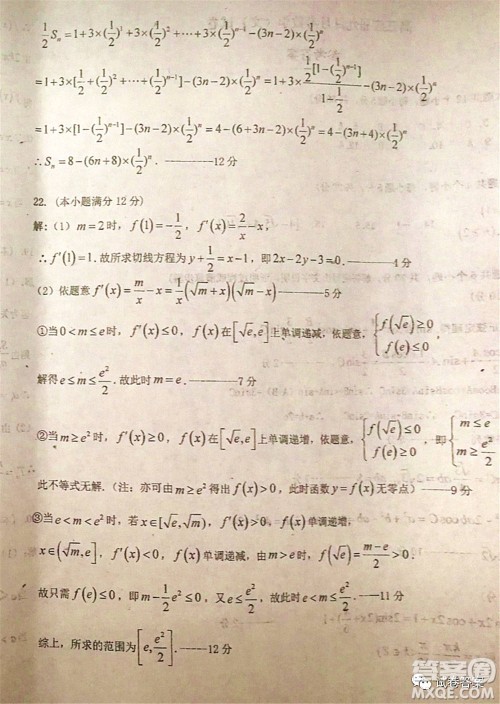 1/2 Sₙ = 1+3×(1/2)¹+3×(1/2)²+···+3×(1/2)ⁿ⁻¹-(3n-2)×(1/2)ⁿ
=1+3×[1/2+(1/2)²+···+(1/2)ⁿ⁻¹]-(3n-2)×(1/2)ⁿ=1+3×(1/2[1-(1/2)ⁿ⁻¹])/(1-1/2)-(3n-2)×(1/2)ⁿ
=1+3×[1-(1/2)ⁿ⁻¹]-(3n-2)×(1/2)ⁿ=4-(6+3n-2)×(1/2)ⁿ=4-(3n+4)×(1/2)ⁿ
∴Sₙ=8-(6n+8)×(1/2)ⁿ. ———12分
22.（本小题满分12分）
解：（1）m=2时，f(1)=-1/2，f′(x)=2/x-x，
∴f′(1)=1.故所求切线方程为y+1/2=x-1，即2x-2y-3=0.———4分
（2）依题意f′(x)=m/x-x=1/x(√m+x)(√m-x)———5分
①当0<m≤e时，f′(x)≤0，f(x)在[√e,e]上单调递减，依题意，{f(√e)≥0 f(e)≤0，
解得e≤m≤e²/2.故此时m=e.———7分
②当m≥e²时，f′(x)≥0，f(x)在[√e,e]上单调递增，依题意，{f(√e)≤0 f(e)≥0，即{m≤e m≥e²/2
此不等式无解.（注：亦可由m≥e²得出f(x)>0，此时函数y=f(x)无零点）———9分
③当e<m<e²时，若x∈[√e,√m]，f′(x)>0，f(x)单调递增，
x∈(√m,e]，f′(x)<0，f(x)单调递减，由m>e时，f(√e)=(m-e)/2>0.
故只需f(e)≤0，即m-1/2e²≤0，又e≤e²/2，故此时e<m≤e²/2.——11分
综上，所求的范围为[e,e²/2].———12分
试卷答案
答案圈
MXQE.COM